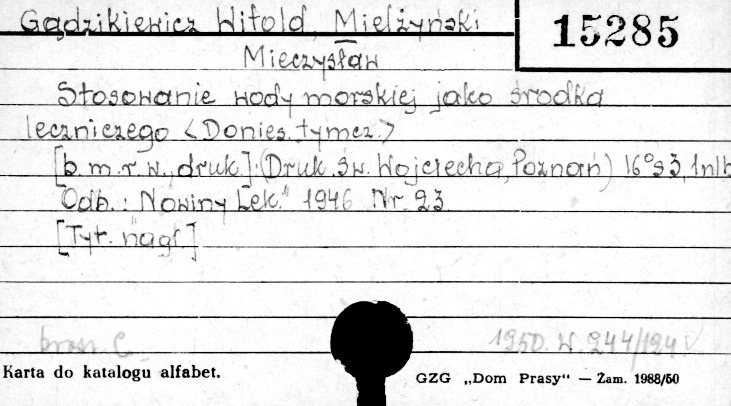 Gądzikiewicz Witold, Mielżyński
15285
Mieczysław
Stosowanie wody morskiej jako środka
leczniczego <Donies. tymcz.>
[b. m. r. w., druk.] (Druk. Św. Wojciecha, Poznań) 16° s 3, 1nlb
Odb.: Nowiny Lek." 1946 Nr. 23
[Tyt. nagł.]
brosz. C.
1950. W. 244/124
Karta do katalogu alfabet.
GZG „Dom Prasy“ — Zam. 1988/50